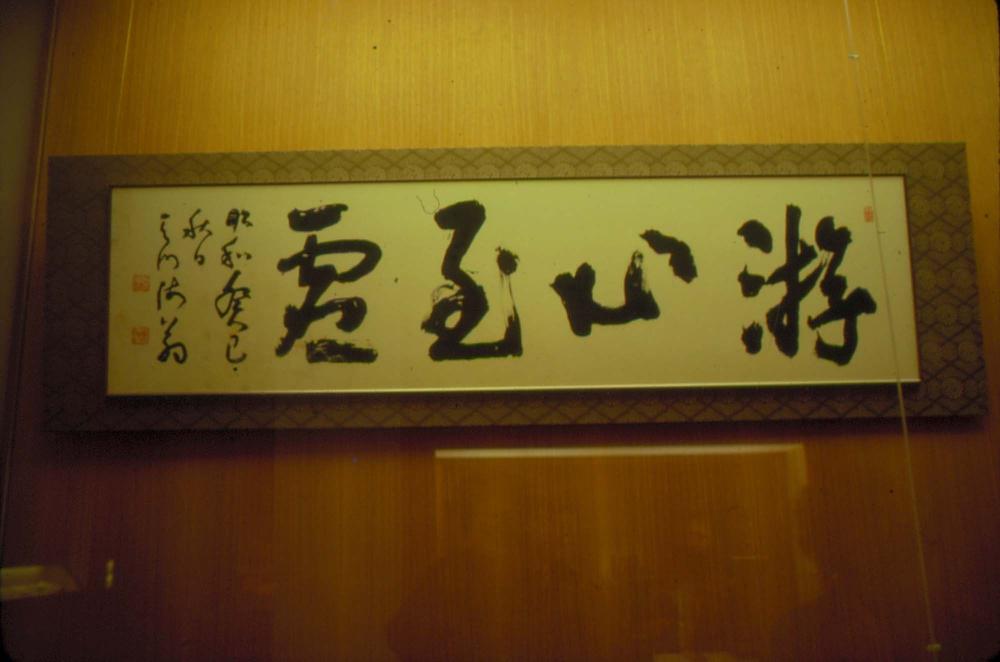 游心至虚
昭和癸巳
秋日